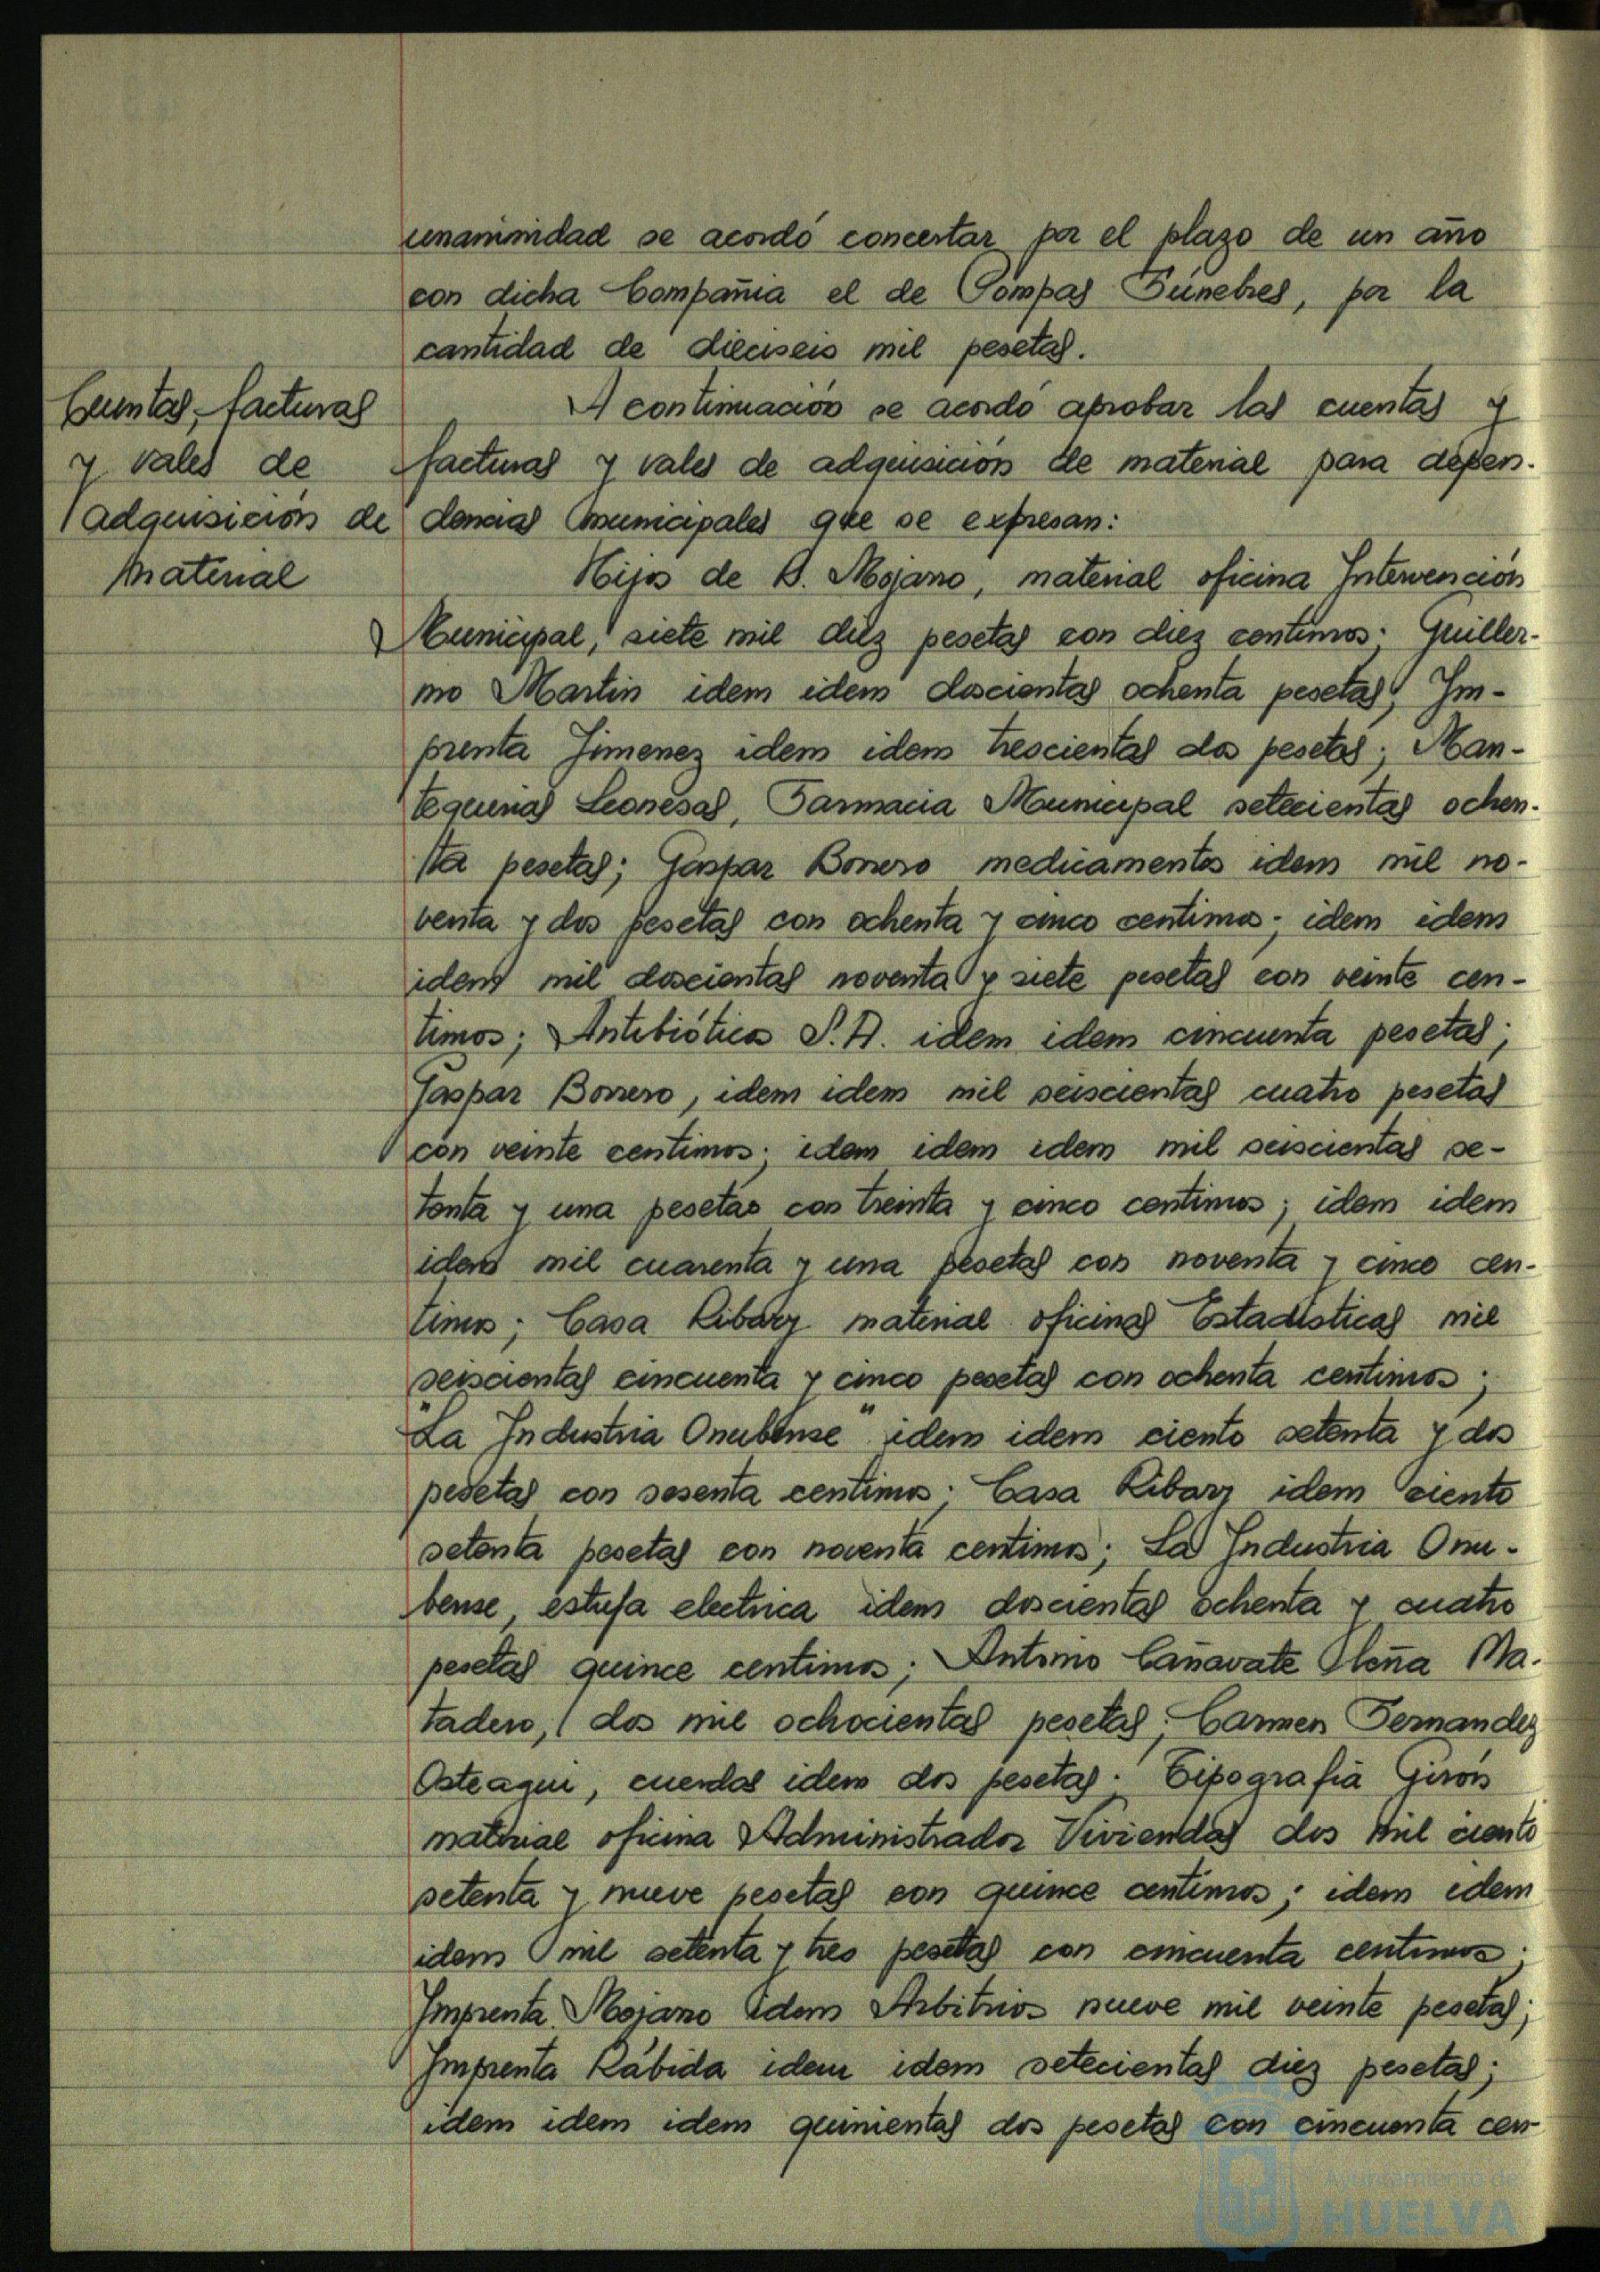 unanimidad se acordó concertar por el plazo de un año
con dicha Compañia el de Pompas Fúnebres, por la
cantidad de dieciseis mil pesetas.
Cuentas, facturas
y vales de
adquisición de
material
A continuación se acordó aprobar las cuentas y
facturas y vales de adquisición de material para depen-
dencias municipales que se expresan:
Hijos de A. Mojarro, material oficina Intervención
Municipal, siete mil diez pesetas con diez centimos; Guiller-
mo Martin idem idem doscientas ochenta pesetas; Im-
prenta Jimenez idem idem trescientas dos pesetas; Man-
tequerias Leonesas, Farmacia Municipal setecientas ochen-
ta pesetas; Gaspar Borrero medicamentos idem mil no-
venta y dos pesetas con ochenta y cinco centimos; idem idem
idem mil doscientas noventa y siete pesetas con veinte cen-
timos; Antibióticos S.A. idem idem cincuenta pesetas;
Gaspar Borrero, idem idem mil seiscientas cuatro pesetas
con veinte centimos; idem idem idem mil seiscientas se-
tenta y una pesetas con treinta y cinco centimos; idem idem
idem mil cuarenta y una pesetas con noventa y cinco cen-
timos; Casa Ribarz material oficinas Estadísticas mil
seiscientas cincuenta y cinco pesetas con ochenta centimos;
"La Industria Onubense" idem idem ciento setenta y dos
pesetas con sesenta centimos; Casa Ribarz idem ciento
setenta pesetas con noventa centimos; La Industria Onu-
bense, estufa electrica idem doscientas ochenta y cuatro
pesetas quince centimos; Antonio Cañavate leña Ma-
tadero, dos mil ochocientas pesetas; Carmen Fernandez
Osteagui, cuerdas idem dos pesetas; Tipografia Girón
material oficina Administrador Viviendas dos mil ciento
setenta y nueve pesetas con quince centimos; idem idem
idem mil setenta y tres pesetas con cincuenta centimos;
Imprenta Mojarro idem Arbitrios nueve mil veinte pesetas;
Imprenta Rábida idem idem setecientas diez pesetas;
idem idem idem quinientas dos pesetas con cincuenta cen-
Ayuntamiento de
HUELVA